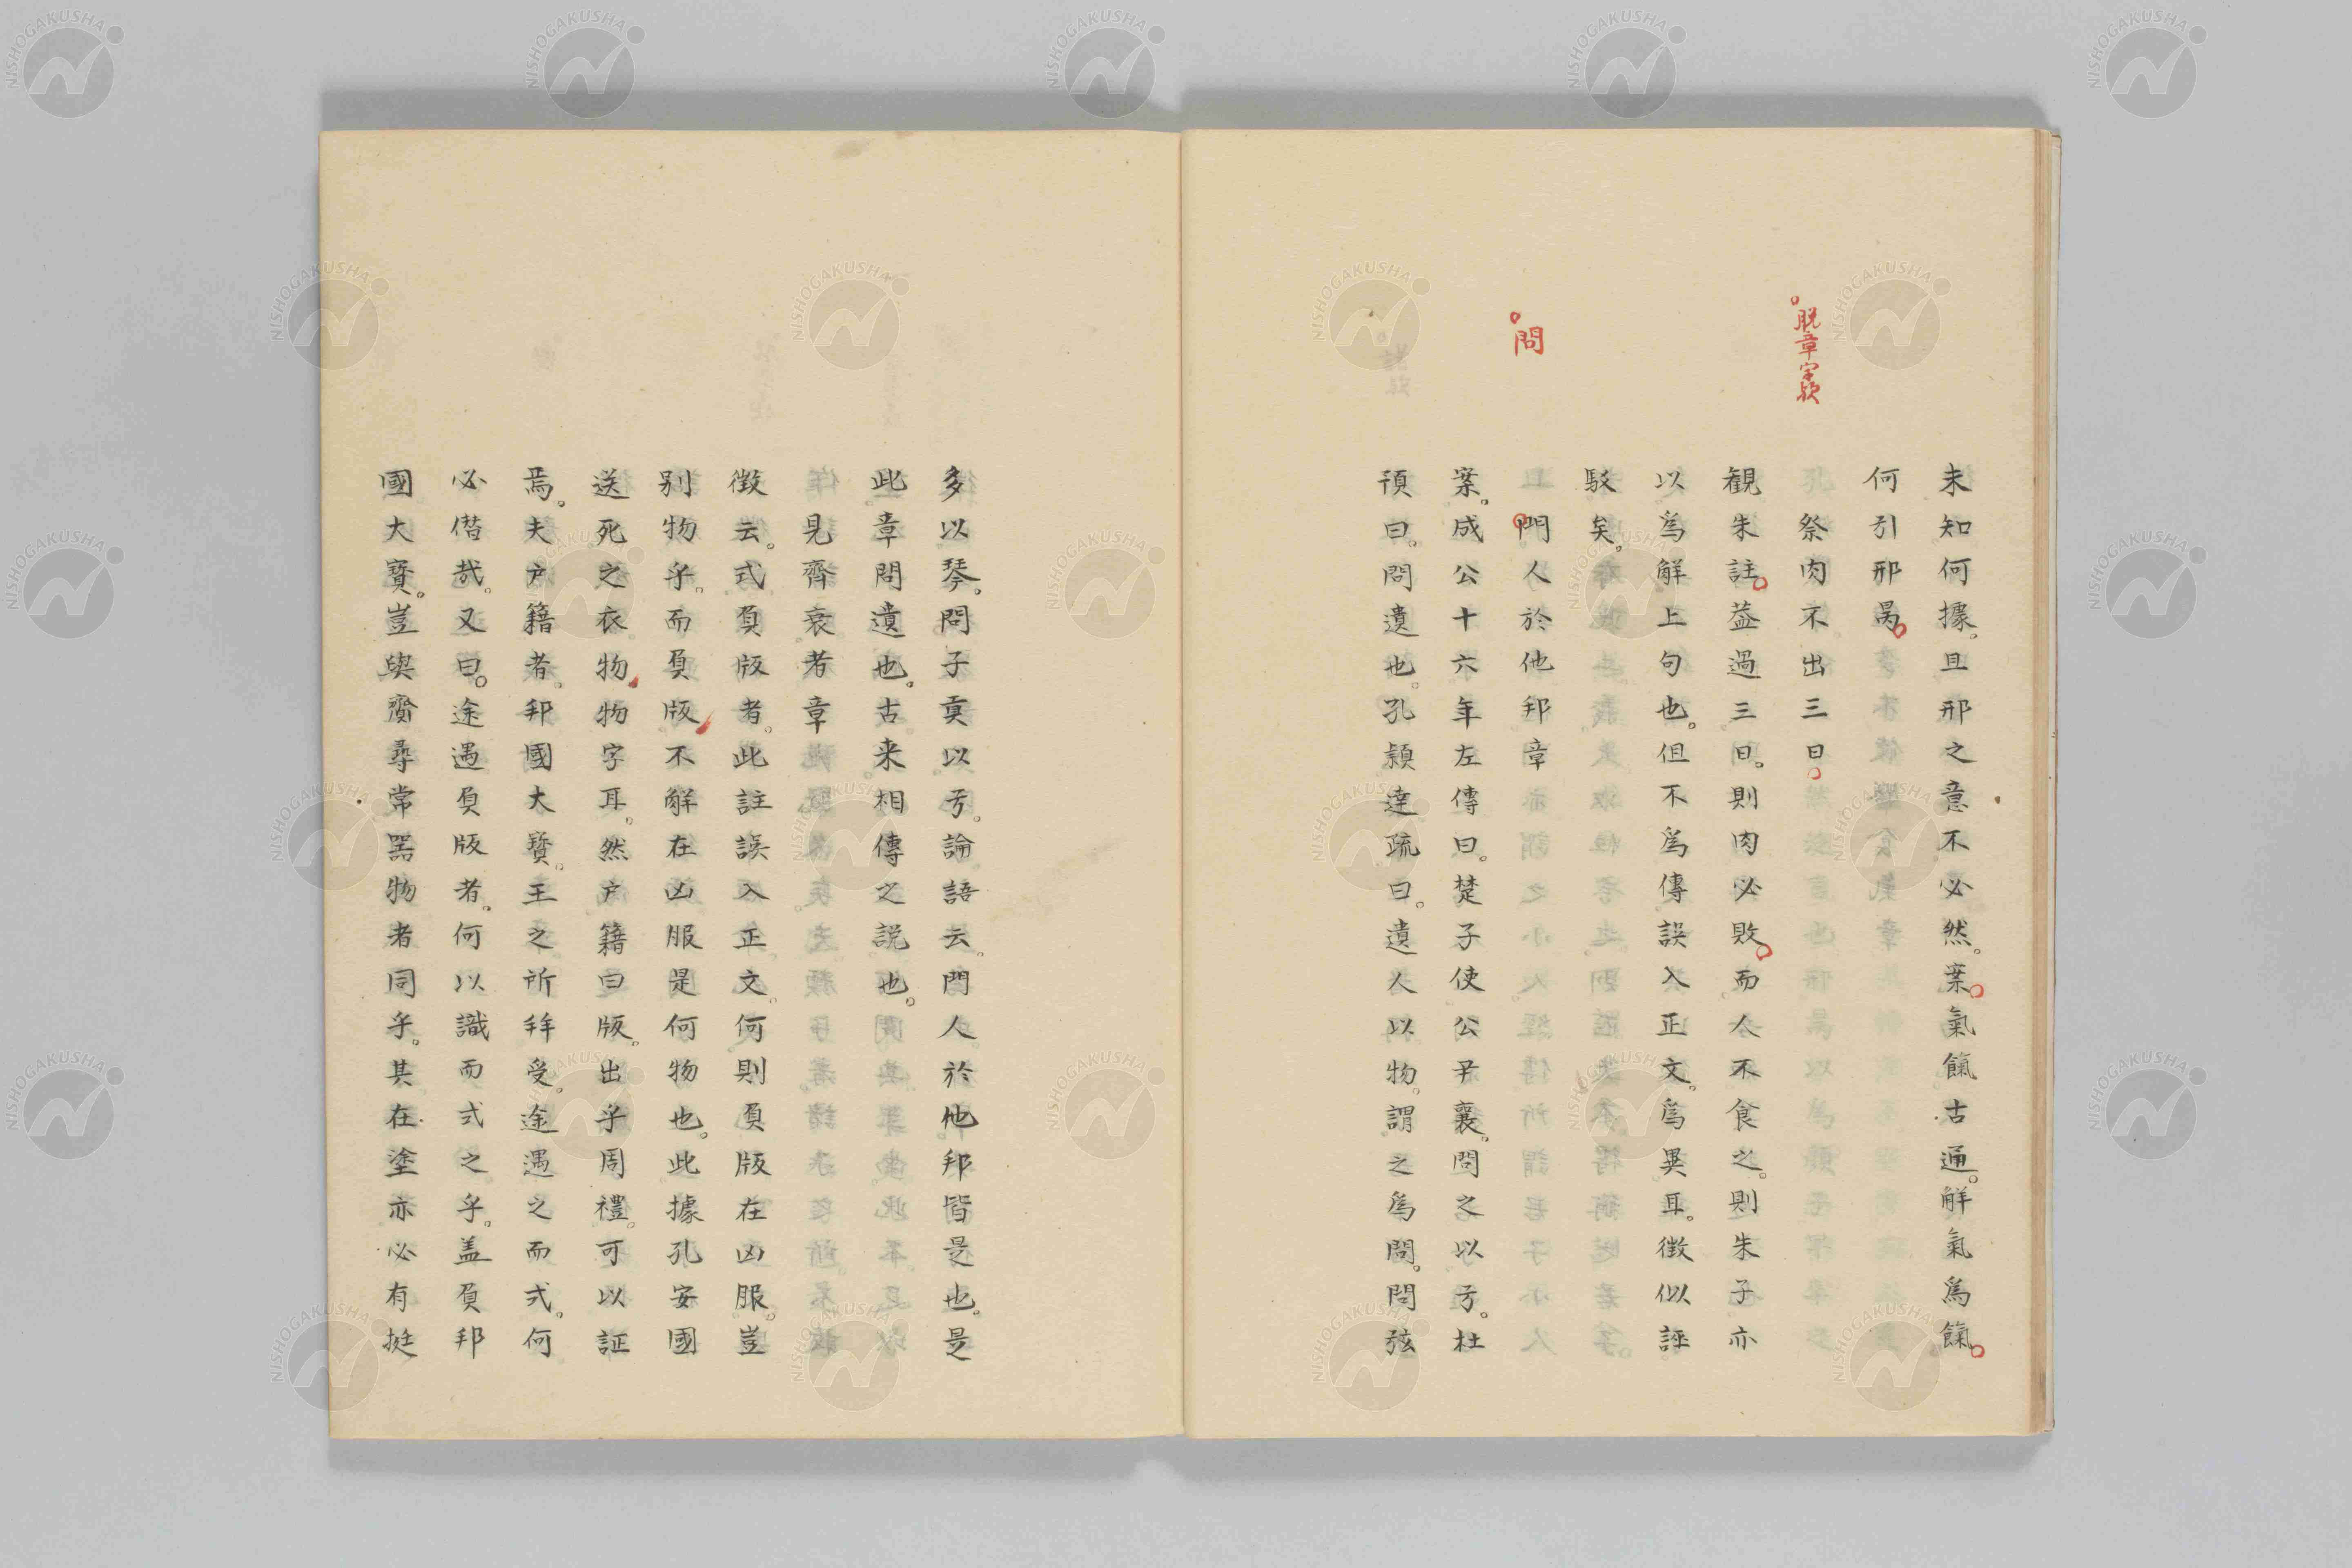 脱章字欤
問
未知何據。且邢之意不必然。案。氣餼古通。解氣爲餼。
何引邢昺。
祭肉不出三日。
觀朱註。益過三日。則肉必敗。而人不食之。則朱子亦
以爲解上句也。但不爲傳誤入正文。爲異耳。徵似誣
駁矣。
門人於他邦章
案。成公十六年左傳曰。楚子使公尹襄。問之以弓。杜
預曰。問遺也。孔穎達疏曰。遺人以物。謂之爲問。問弦
多以琴。問子貢以弓。論語云。問人於他邦皆是也。是
此章問遺也。古来相傳之説也。
見齊衰者章
徴云。式負版者。此註誤入正文。何則負版在凶服。豈
別物乎。而負版不解在凶服是何物也。此據孔安國
送死之衣物物字耳。然戸籍曰版。出乎周禮。可以証
焉。夫戸籍者。邦國大寶。王之所拜受。途遇之而式。何
必偕哉。又曰。途遇負版者。何以識而式之乎。盖負邦
國大寶。豈與齎尋常器物者同乎。其在塗亦必有挺